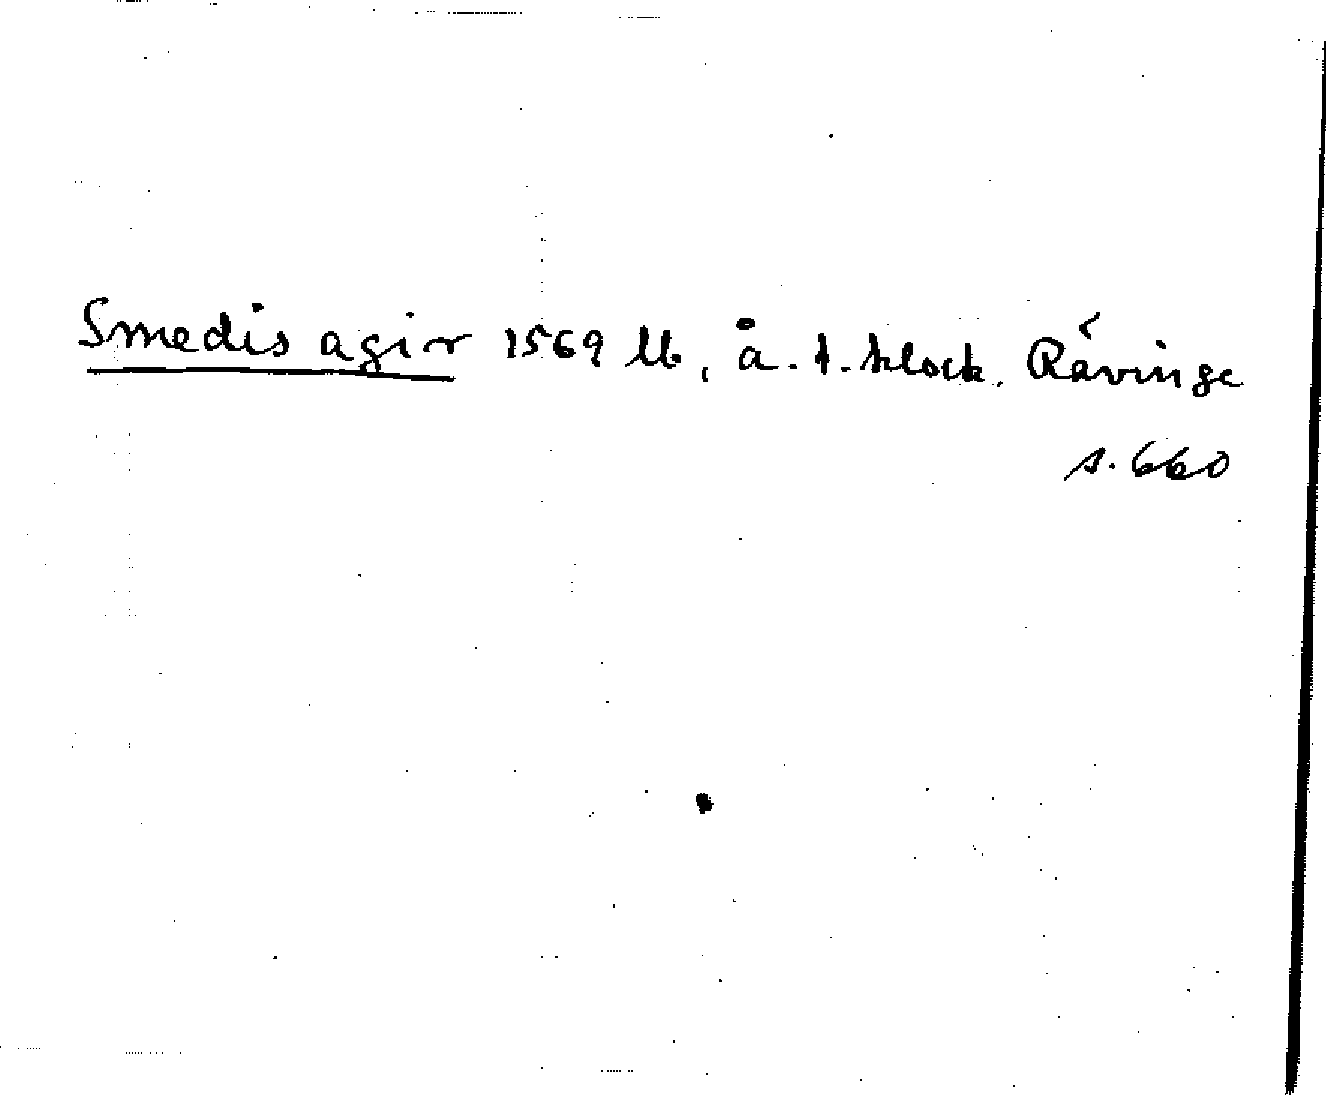 Smedis agir 1569 Lb, å. t. klock. Rävinge
s. 660